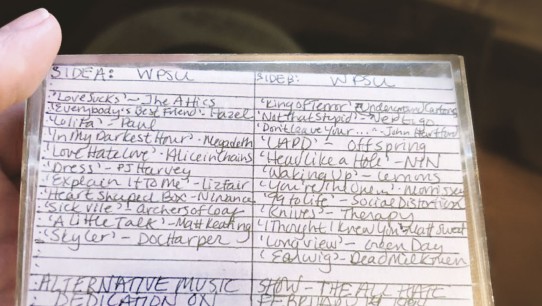 SIDEA: WPSU
'Love Sucks' - The Attics
'Everybody's Best Friend' - Hazel
'Lolita' -
'In My Darkest Hour' - Megadeth
'Love Hate Love' - Alice in Chains
'Dress' - PJ Harvey
'Explain It To Me' - Liz Fair
'Heart Shaped Box' - Nirvana
'Sick File' - Archers of Loaf
'A Little Talk' - Matt Keating
'Skyler' - Doc Harper
SIDEB: WPSU
'King of Terror'
'Not that Stupid' -
'Don't Leave Your ...' - John
'LAPD' - Offspring
'Head Like a Hole' - NIN
'Waking Up' - Lemons
'You're The Queen'
'99 to Life' - Social Distortion
'Knives' - Therapy
'I Thought I Knew You' Matt Sweet
'Longview' - Green Day
- Dead Milkmen
ALTERNATIVE MUSIC SHOW - THE ALL HATE
DEDICATION ON FEBRUARY